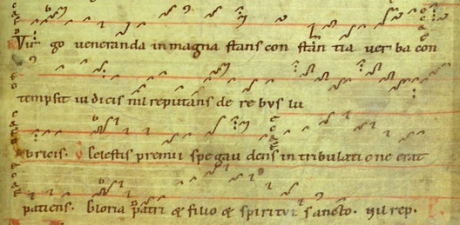 Vir go veneranda in magna stans con stan tia ver ba con
tempsit iudicis nil reputans de re bus lu
bricis. V Celestis premii spe gau dens in tribulati one erat
patiens. Gloria patri & filio & spiritui sancto. nil rep.